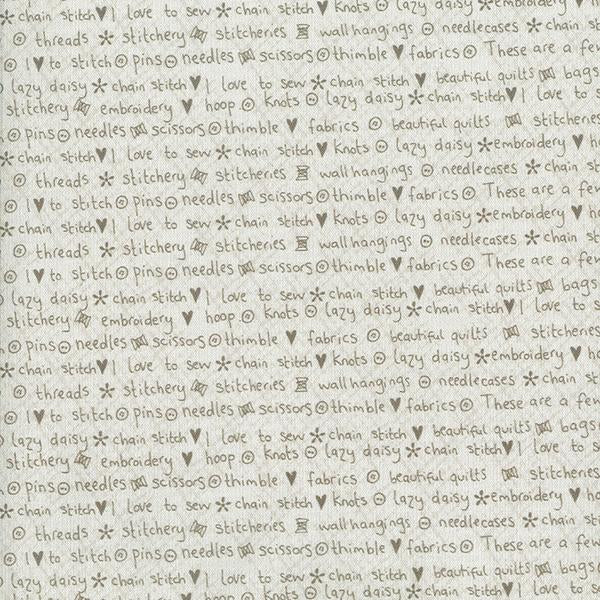 chain stitch ♥ I love to sew * chain stitch ♥ knots lazy daisy * embroidery
threads * stitchery stitcheries wallhangings needlecases * chain
I ♥ to stitch pins needles scissors thimble ♥ fabrics These are a few
lazy daisy * chain stitch ♥ I love to sew * chain stitch ♥ beautiful quilts bags
stitchery embroidery ♥ hoop knots lazy daisy * chain stitch ♥ I love to
pins needles scissors thimble ♥ fabrics beautiful quilts stitcheries
* chain stitch ♥ I love to sew * chain stitch ♥ knots lazy daisy * embroidery ♥
threads * stitchery stitcheries wallhangings needlecases * chain
I ♥ to stitch pins needles scissors thimble ♥ fabrics These are a few
* chain stitch ♥ I love to sew * chain stitch ♥ knots lazy daisy * embroidery ♥
threads * stitchery stitcheries wallhangings needlecases * chain
I ♥ to stitch pins needles scissors thimble ♥ fabrics These are a few
lazy daisy * chain stitch ♥ I love to sew * chain stitch ♥ beautiful quilts bags
stitchery embroidery ♥ hoop knots lazy daisy * chain stitch ♥ I love to
pins needles scissors thimble ♥ fabrics beautiful quilts stitcheries
* chain stitch ♥ I love to sew * chain stitch ♥ knots lazy daisy * embroidery ♥
threads * stitchery stitcheries wallhangings needlecases * chain
I ♥ to stitch pins needles scissors thimble ♥ fabrics These are a few
lazy daisy * chain stitch ♥ I love to sew * chain stitch ♥ beautiful quilts bags
stitchery embroidery ♥ hoop knots lazy daisy * chain stitch ♥ I love to
pins needles scissors thimble ♥ fabrics beautiful quilts stitcheries
* chain stitch ♥ I love to sew * chain stitch ♥ knots lazy daisy * embroidery ♥
threads * stitchery stitcheries wallhangings needlecases * chain
I ♥ to stitch pins needles scissors thimble ♥ fabrics These are a few
lazy daisy * chain stitch ♥ I love to sew * chain stitch ♥ beautiful quilts bags
stitchery embroidery ♥ hoop knots lazy daisy * chain stitch ♥ I love to